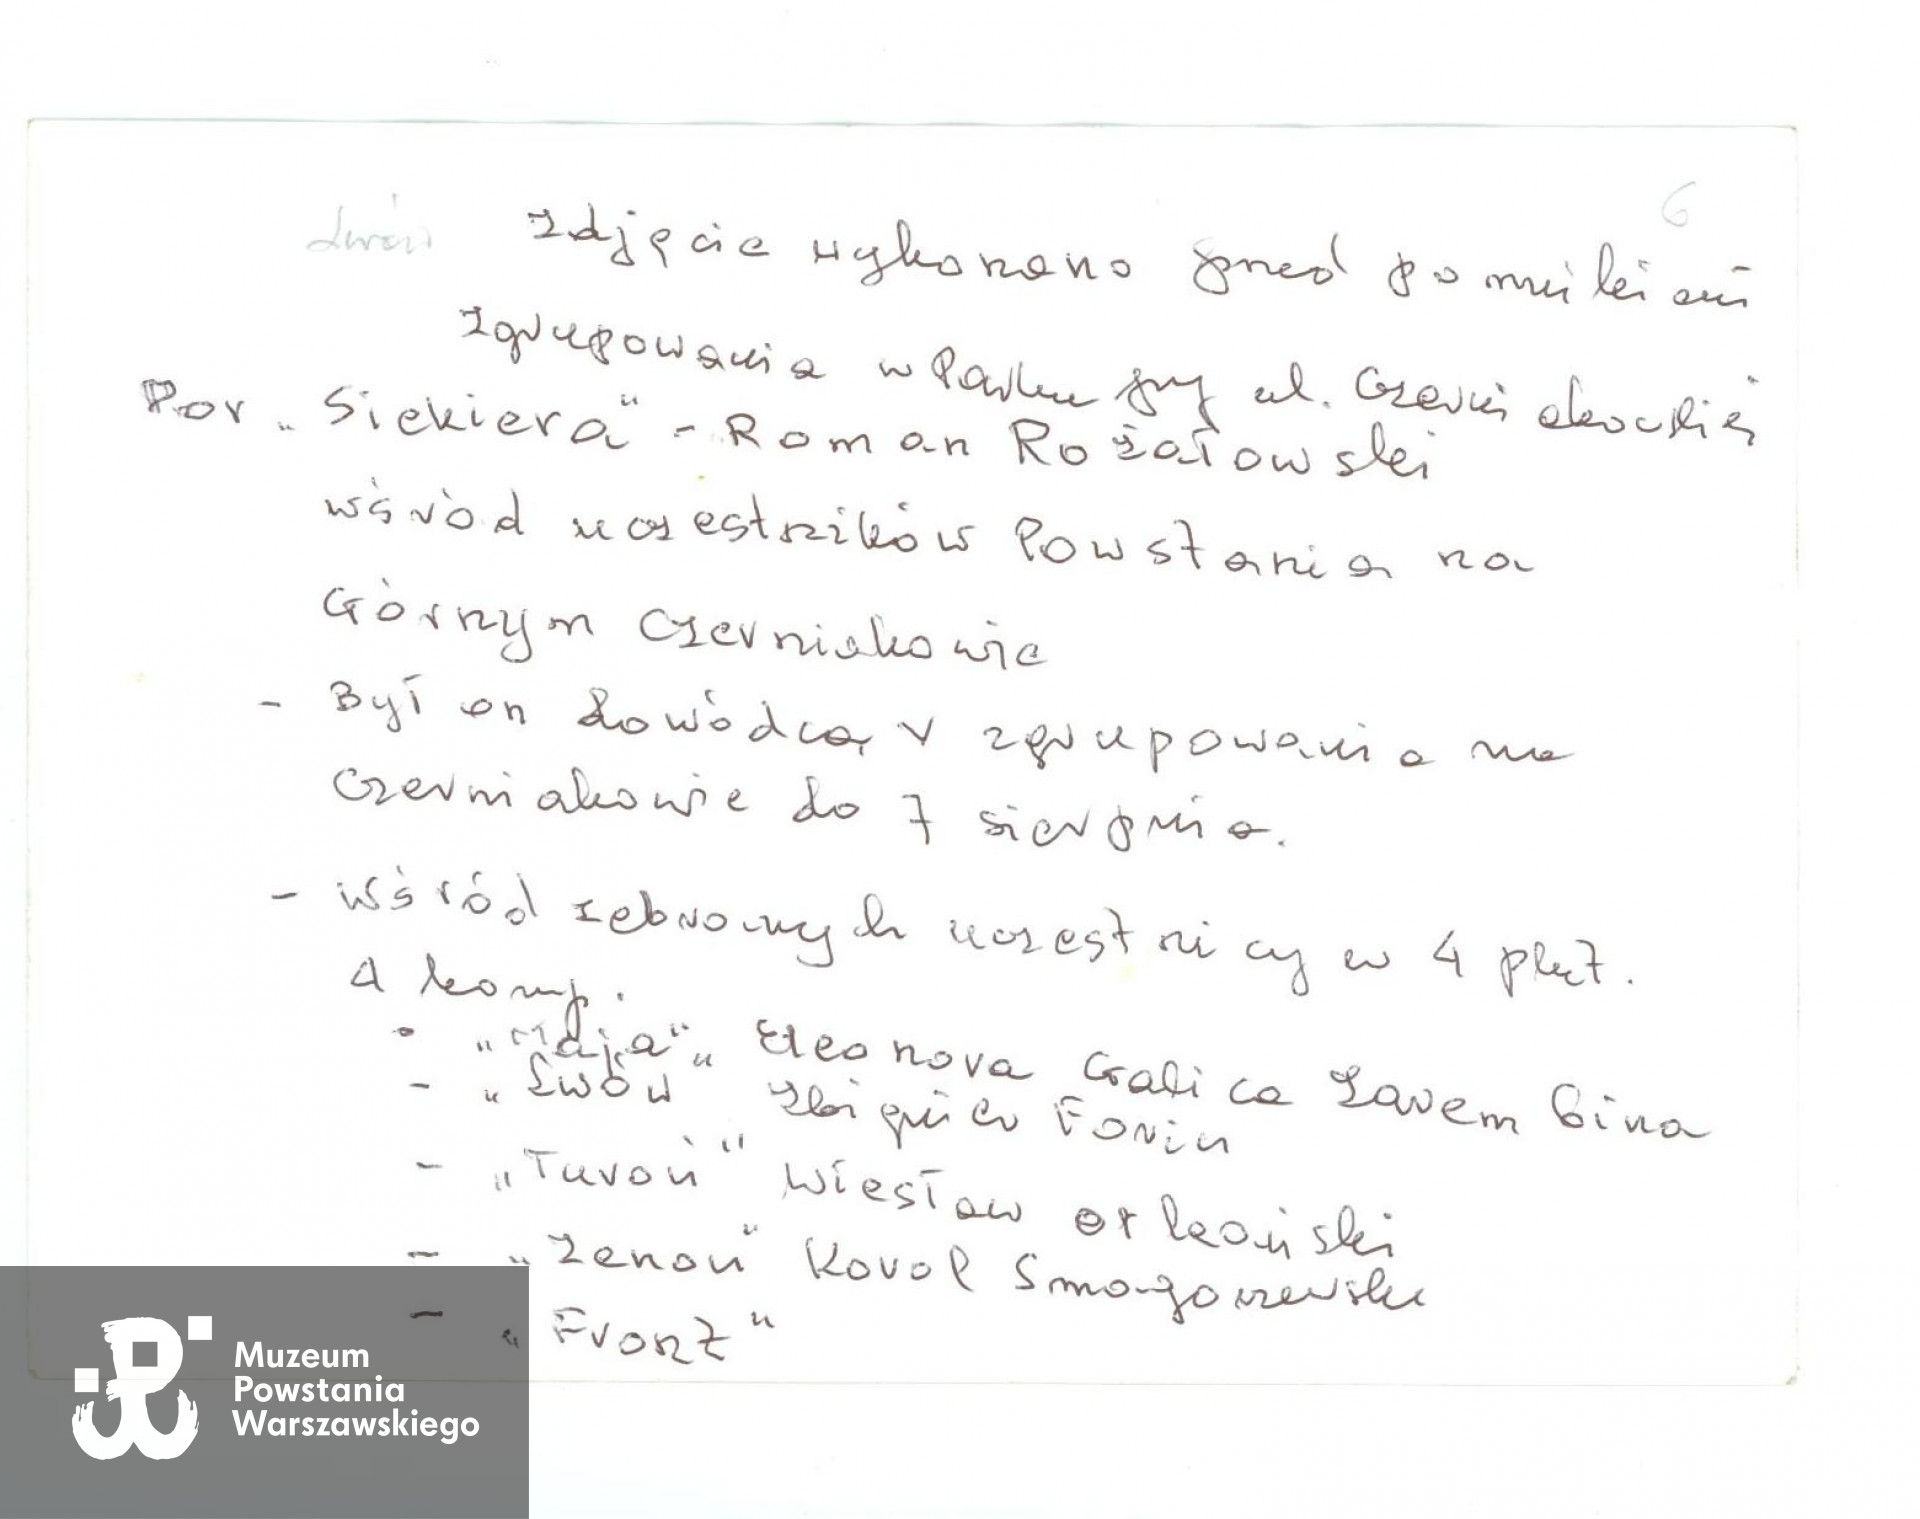 Lwów
6
Zdjęcie wykonano przed pomnikiem
zgrupowania w Parku przy ul. Czerniakowskiej
Por. „Siekiera" - Roman Rożałowski
wśród uczestników Powstania na
Górnym Czerniakowie
- Był on dowódcą V zgrupowania na
Czerniakowie do 7 sierpnia.
- Wśród zebranych uczestnicy w 4 plut.
4 komp.
- „Maja" Eleonora Galica Zarembina
- „Lwów" Zbigniew Forin
- „Turoń" Wiesław Orleański
- „Zenon" Karol Smogorzewski
- „Franz"
Muzeum
Powstania
Warszawskiego